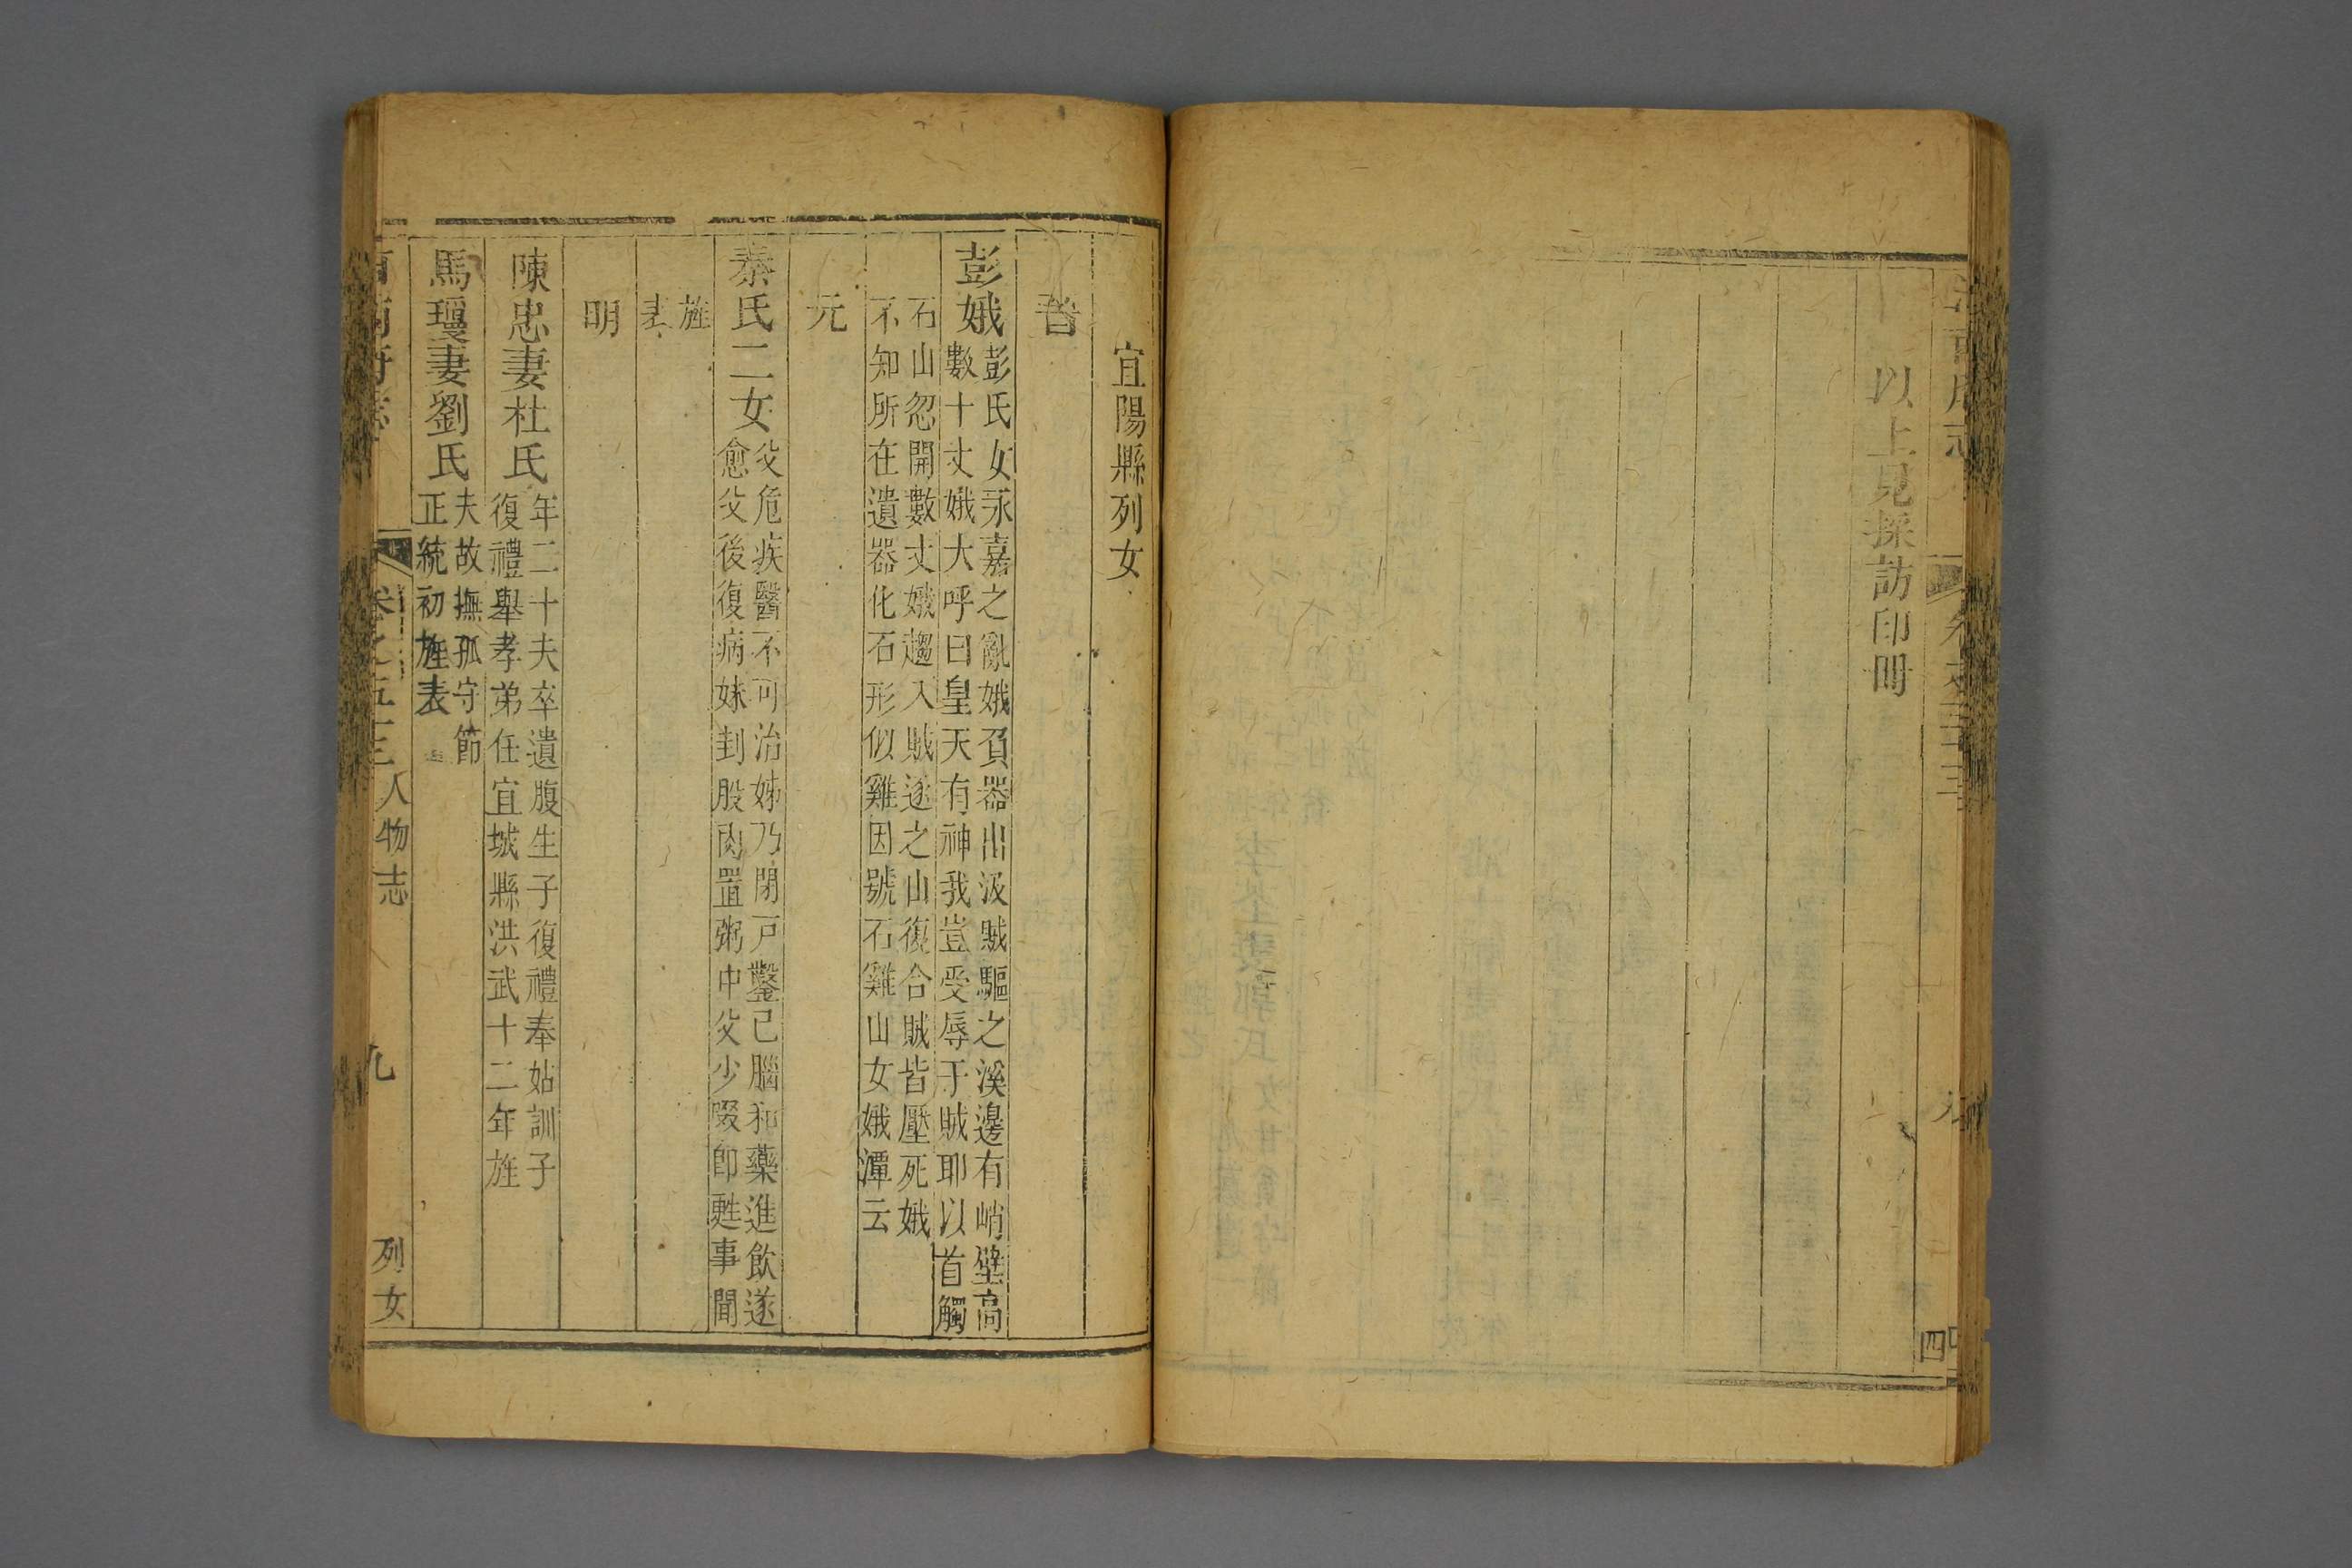 以上見採訪印冊
宜陽縣列女
晉
彭娥彭氏女永嘉之亂娥負器出汲賊驅之溪邊有峭壁高
數十丈娥大呼曰皇天有神我豈受辱于賊耶以首觸
石山忽開數丈娥趨入賊逐之山復合賊皆壓死娥
不知所在遺器化石形似雞因號石雞山女娥潭云
元
秦氏二女父危疾醫不可治姊乃閉戸鑿己腦和藥進飲遂
愈父後復病妹刲股肉置粥中父少啜即甦事聞
旌
表
明
陳忠妻杜氏年二十夫卒遺腹生子復禮奉姑訓子
復禮舉孝弟任宜城縣洪武十二年旌
馬瓊妻劉氏夫故撫孤守節
正統初旌表
人物志
九
列女